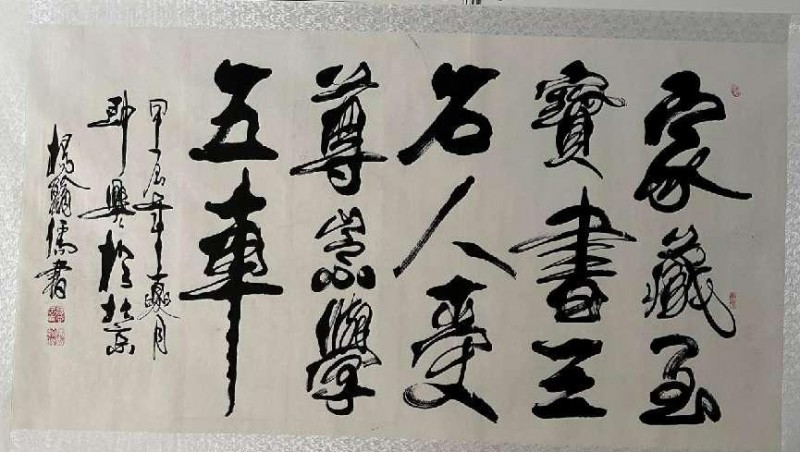 家藏至
寶書三
名人受
尊崇學
五車
甲辰年夏月
即興於北京
楊翰儒書